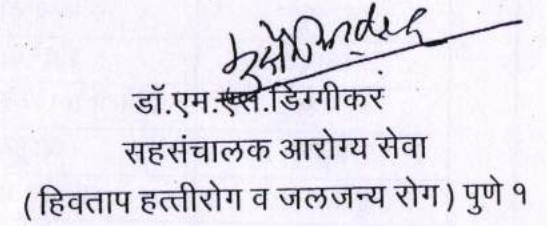 डॉ.एम.एस.डिग्गीकर
सहसंचालक आरोग्य सेवा
(हिवताप हत्तीरोग व जलजन्य रोग) पुणे १